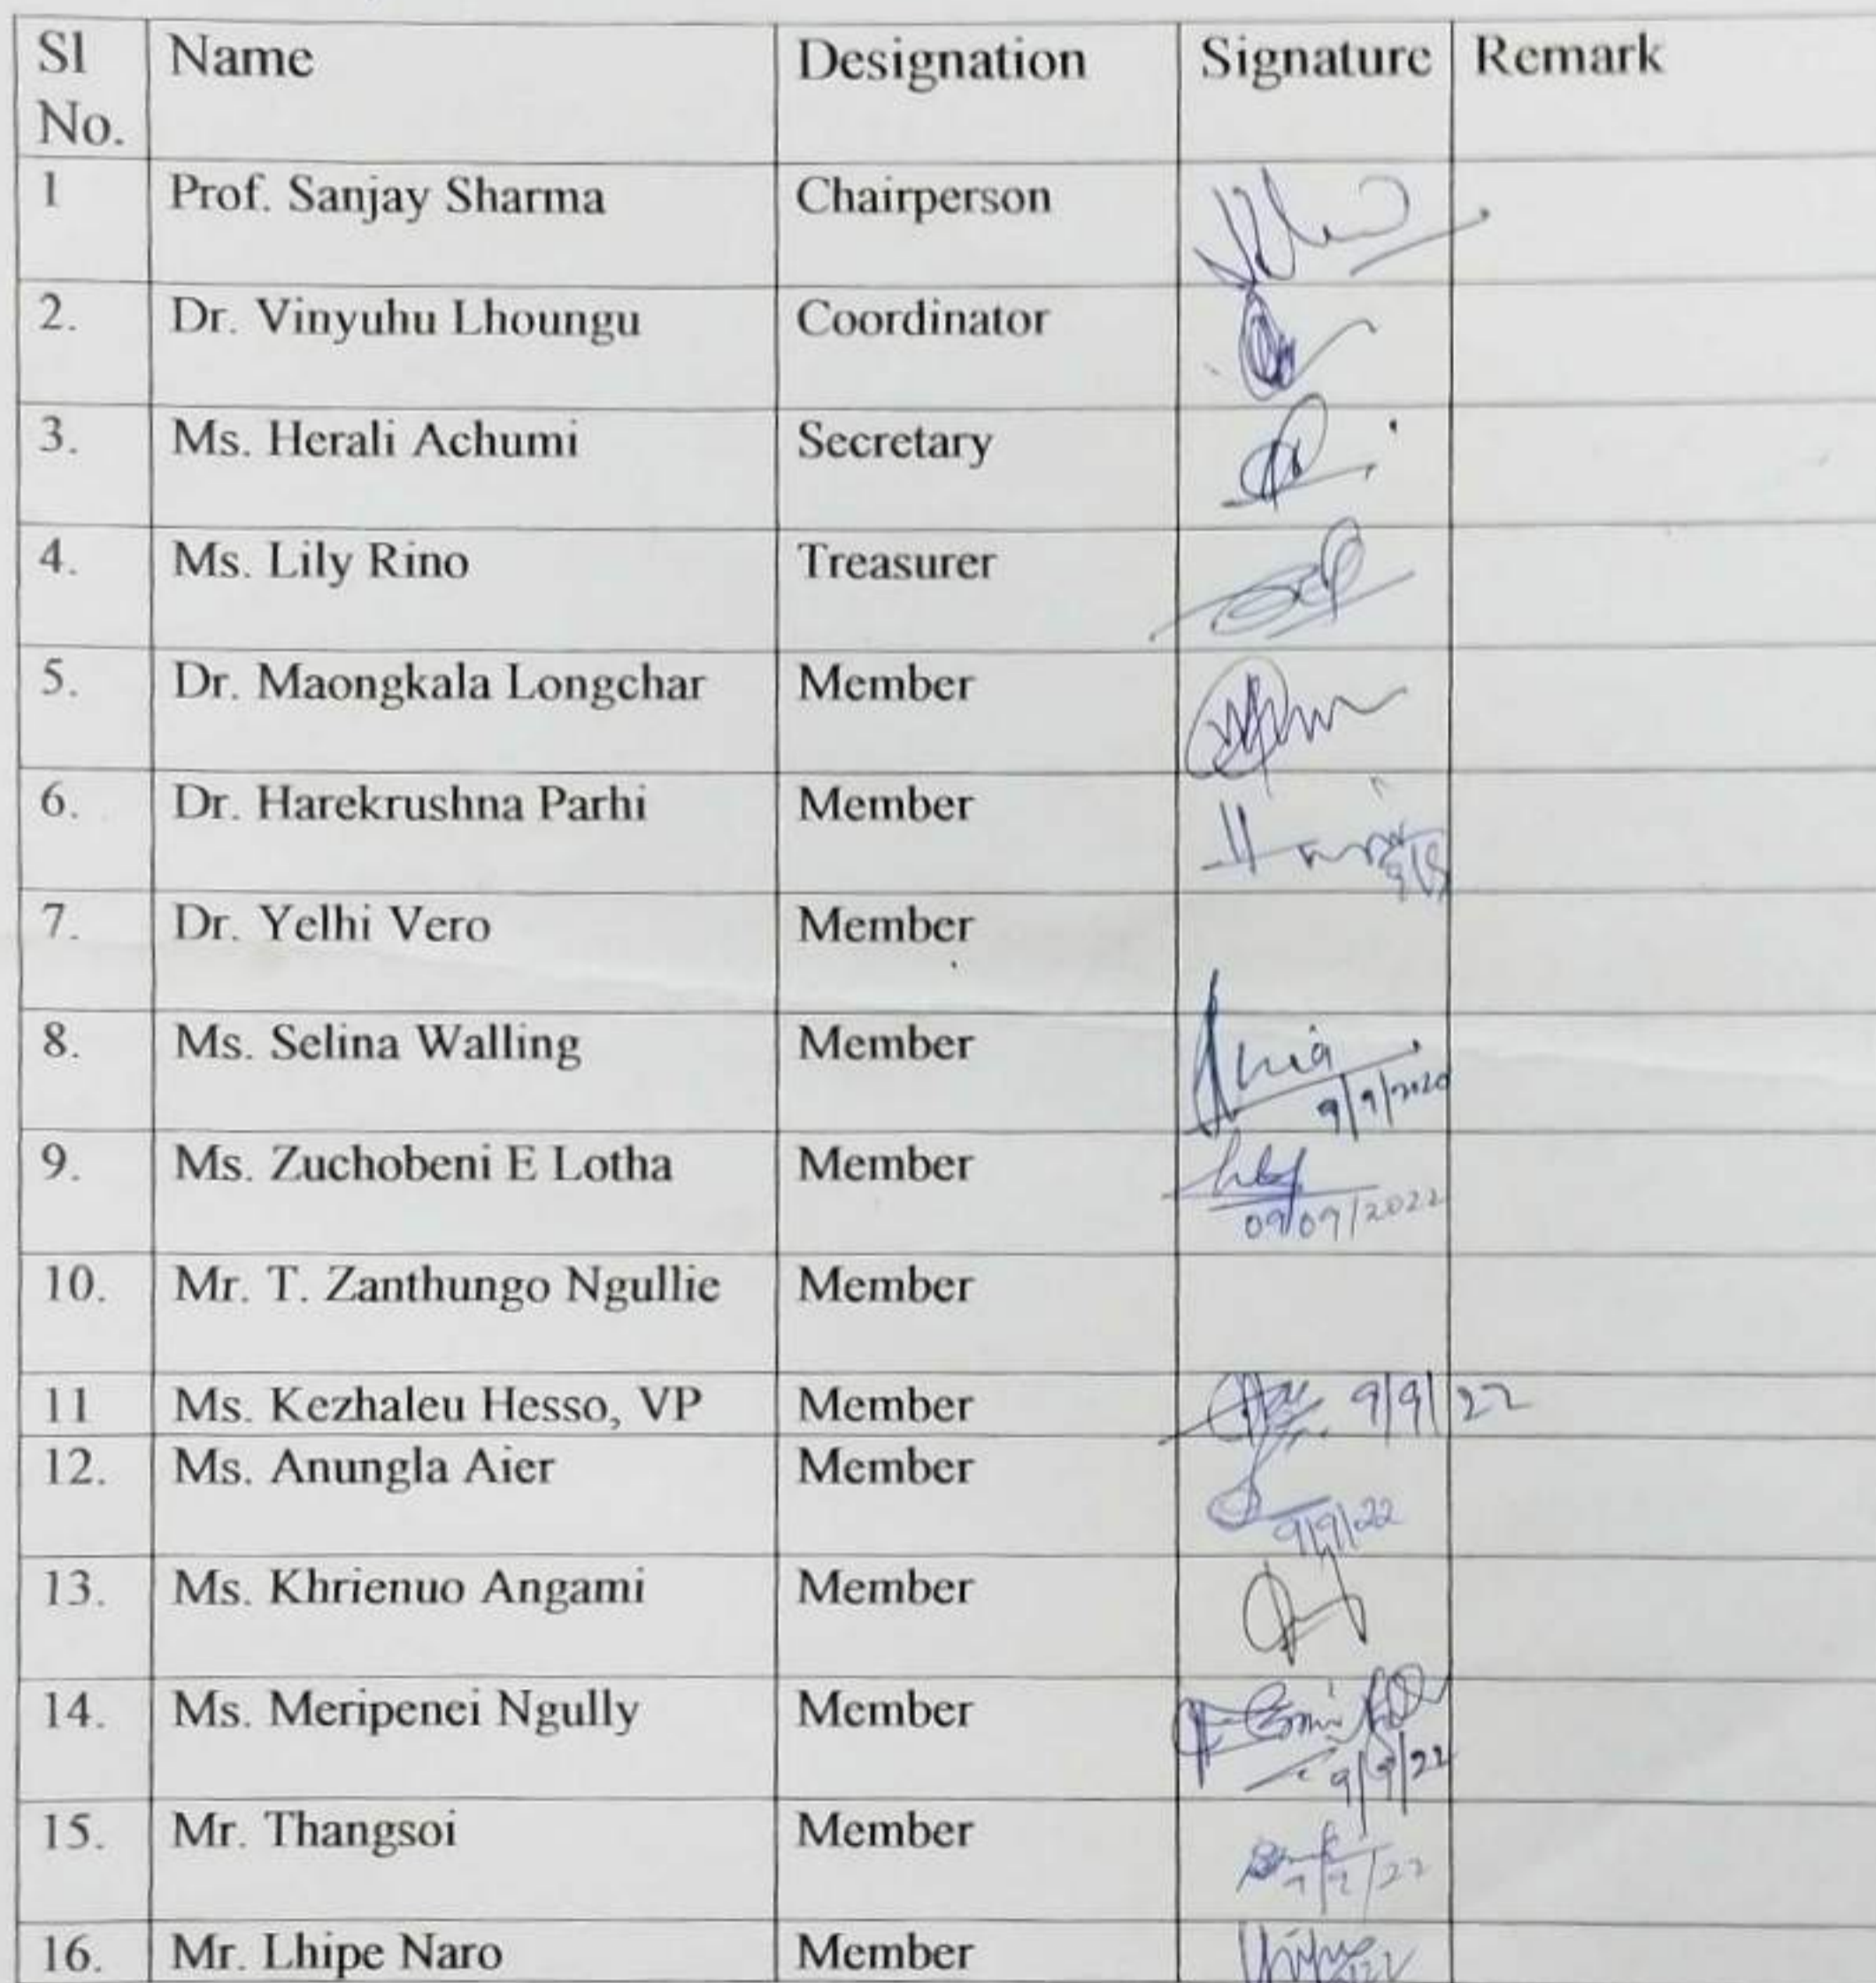 Sl No. Name Designation Signature Remark
1 Prof. Sanjay Sharma Chairperson
2. Dr. Vinyuhu Lhoungu Coordinator
3. Ms. Herali Achumi Secretary
4. Ms. Lily Rino Treasurer
5. Dr. Maongkala Longchar Member
6. Dr. Harekrushna Parhi Member
7. Dr. Yelhi Vero Member
8. Ms. Selina Walling Member
9. Ms. Zuchobeni E Lotha Member
09/09/2022
10. Mr. T. Zanthungo Ngullie Member
11 Ms. Kezhaleu Hesso, VP Member 9/9/22
12. Ms. Anungla Aier Member
9/9/22
13. Ms. Khrienuo Angami Member
14. Ms. Meripenei Ngully Member
9/9/22
15. Mr. Thangsoi Member
16. Mr. Lhipe Naro Member